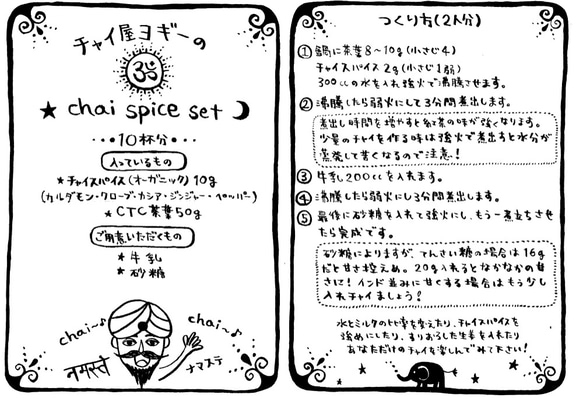 チャイ屋ヨギーの
ॐ
★ chai spice set
・・・10杯分・・・
入っているもの
★チャイスパイス(オーガニック)10g
(カルダモン・クローブ・カシア・ジンジャー・ペッパー)
★CTC茶葉50g
ご用意いただくもの
★牛乳
★砂糖
chai〜♪
chai〜♪
नमस्ते
ナマステ
つくり方(2人分)
① 鍋に茶葉8〜10g(小さじ4)
チャイスパイス2g(小さじ1弱)
300ccの水を入れ強火で沸騰させます。
② 沸騰したら弱火にして3分間煮出します。
煮出し時間を増やすと紅茶の味が強くなります。
少量のチャイを作る時は強火で煮出すと水分が
蒸発して苦くなるので注意!
③ 牛乳200ccを入れます。
④ 沸騰したら弱火にし3分間煮出します。
⑤ 最後に砂糖を入れて強火にし、もう一煮立ちさせ
たら完成です。
砂糖によりますが、てんさい糖の場合は16g
だと甘さ控えめ。20g入れるとなかなかの甘
さに!インド並みに甘くする場合はもう少し
入れチャイましょう!
水とミルクの比率を変えたり、チャイスパイスを
強めにしたり、すりおろした生姜を入れたり
あなただけのチャイを楽しんでみて下さい!